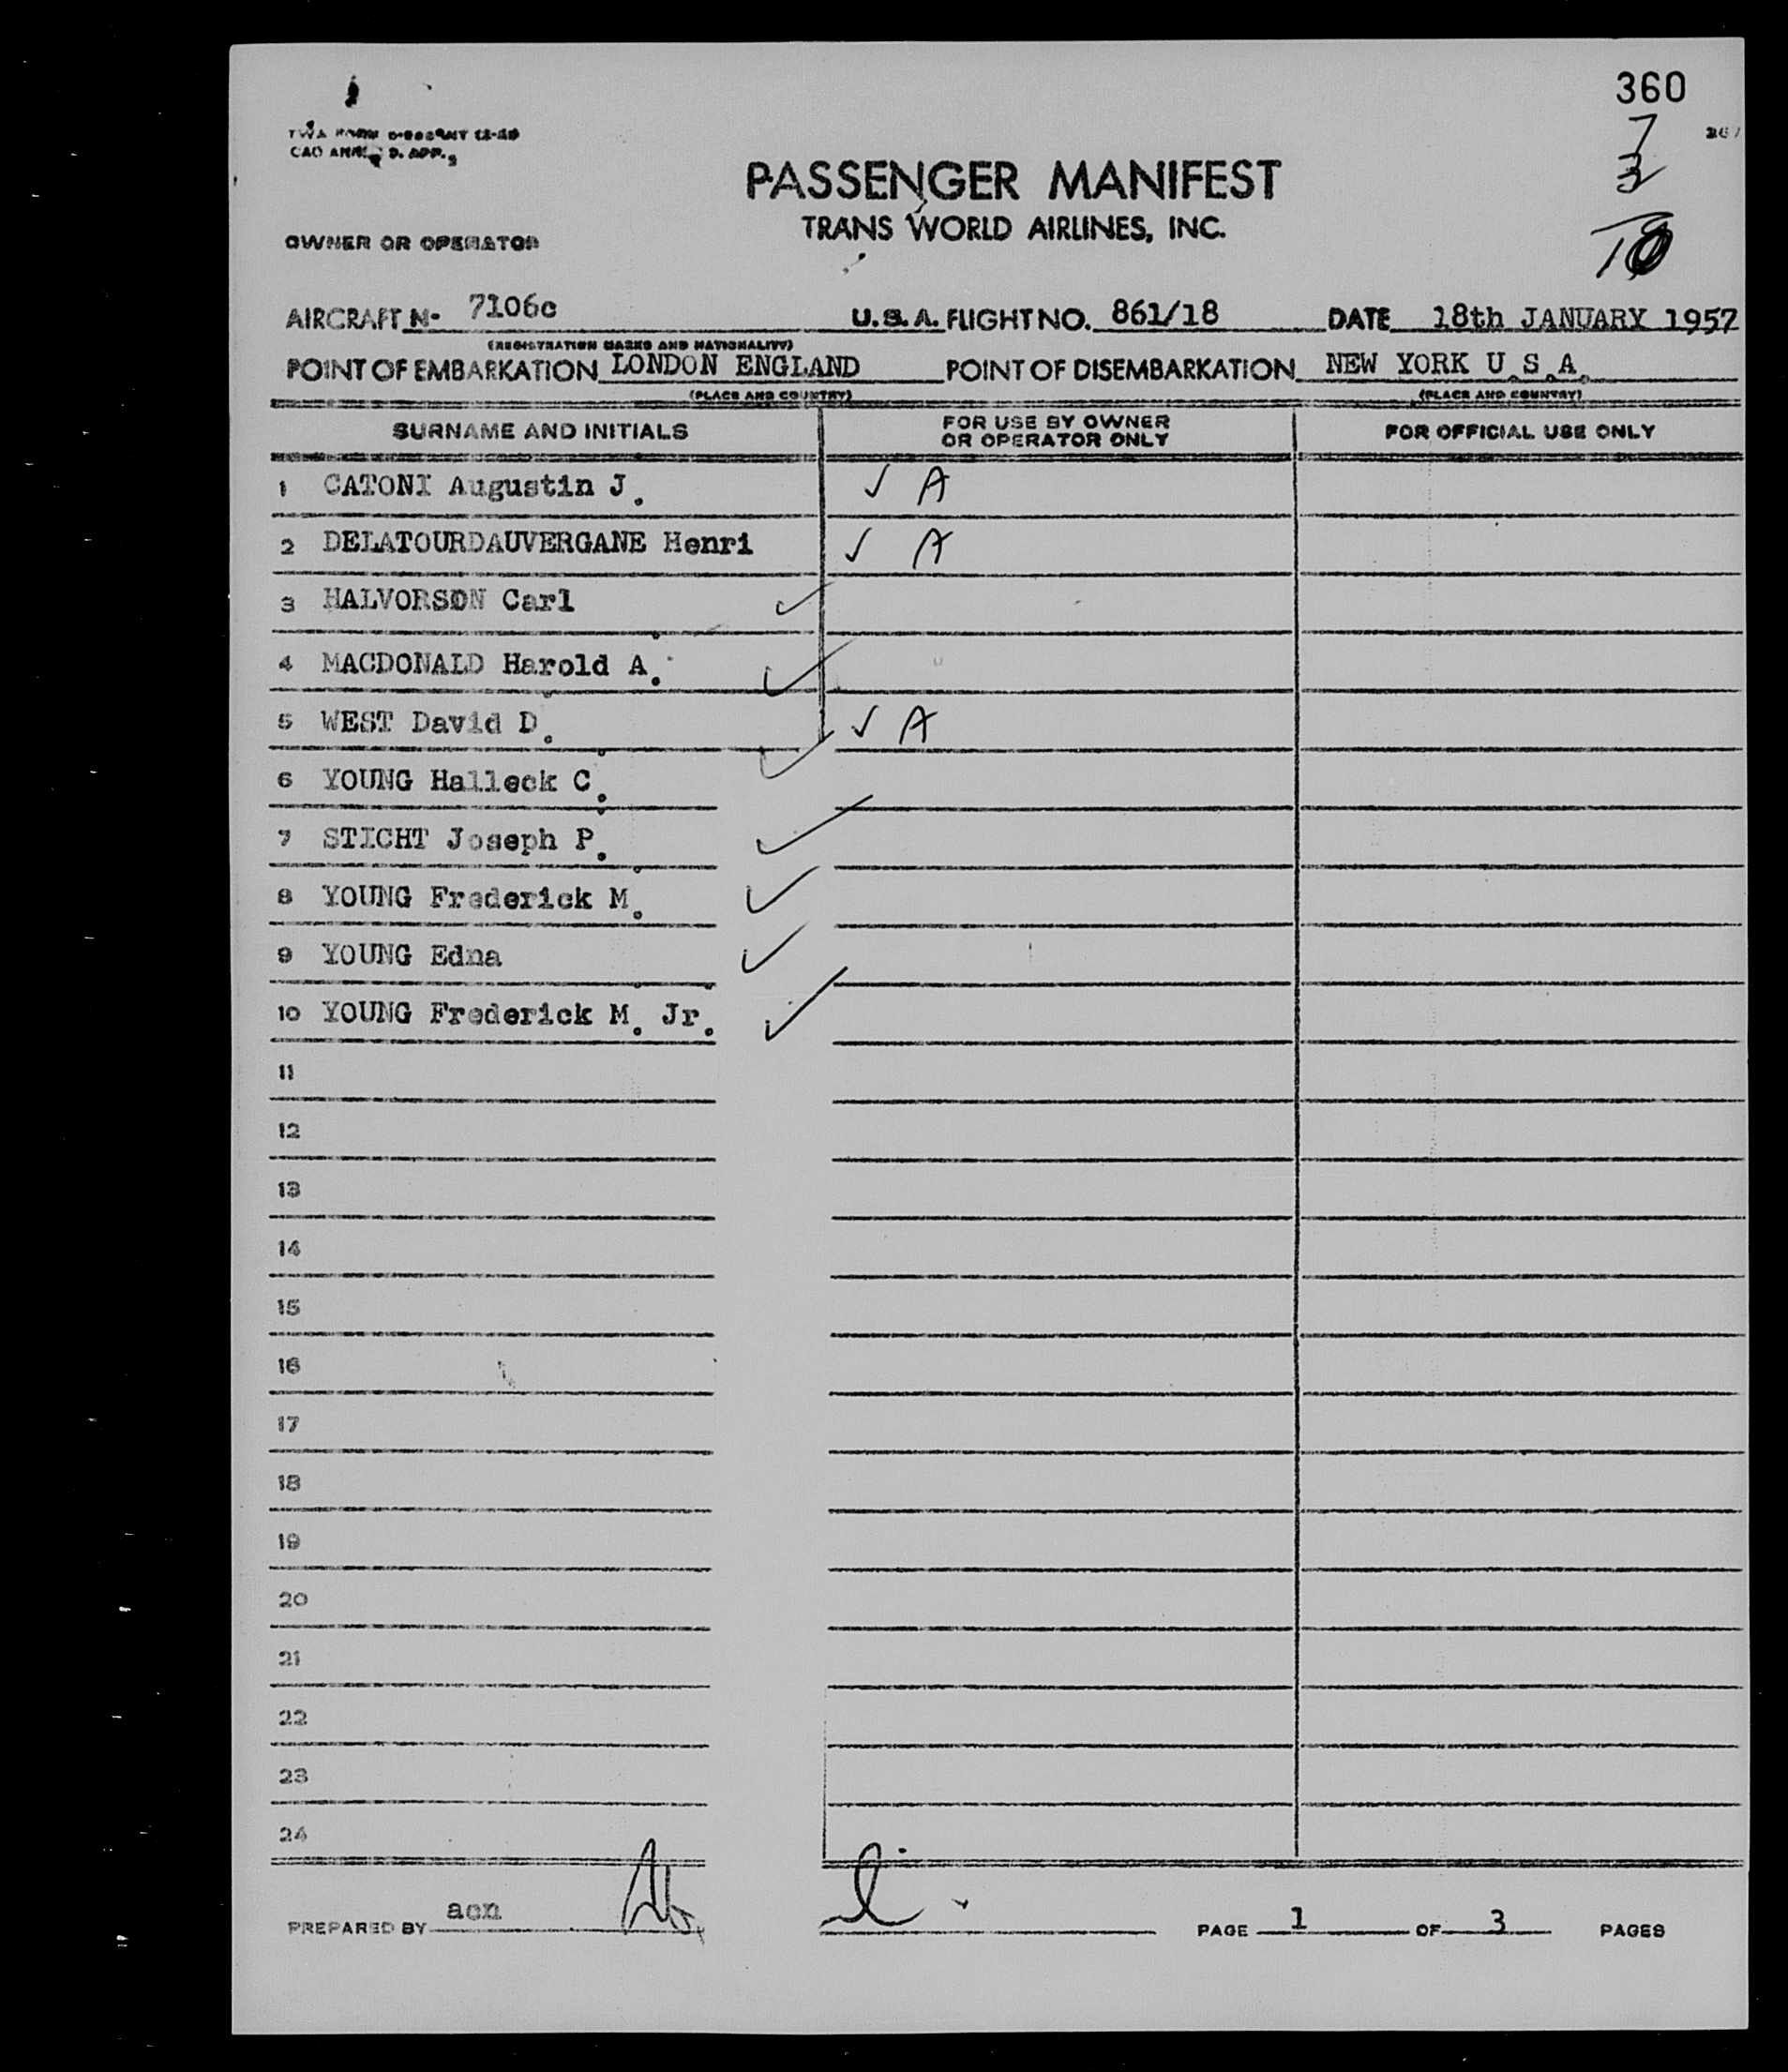 360
7
3
10
TWA FORM
PASSENGER MANIFEST
TRANS WORLD AIRLINES, INC.
OWNER OR OPERATOR
AIRCRAFT N- 7106c U.S.A. FLIGHT NO. 861/18 DATE 18th JANUARY 1957
(REGISTRATION MARKS AND NATIONALITY)
POINT OF EMBARKATION LONDON ENGLAND POINT OF DISEMBARKATION NEW YORK U.S.A.
(PLACE AND COUNTRY) (PLACE AND COUNTRY)
SURNAME AND INITIALS FOR USE BY OWNER OR OPERATOR ONLY FOR OFFICIAL USE ONLY
1 CATONI Augustin J. ✓ A
2 DELATOURDAUVERGANE Henri ✓ A
3 HALVORSON Carl ✓
4 MACDONALD Harold A. ✓
5 WEST David D. ✓ A
6 YOUNG Halleck C. ✓
7 STICHT Joseph P. ✓
8 YOUNG Frederick M. ✓
9 YOUNG Edna ✓
10 YOUNG Frederick M. Jr. ✓
11
12
13
14
15
16
17
18
19
20
21
22
23
24
PREPARED BY aon PAGE 1 OF 3 PAGES